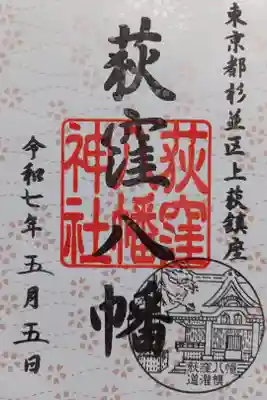 東京都杉並区上荻鎮座
荻窪八幡
荻窪八幡神社
令和七年五月五日
荻窪八幡
道灌槇